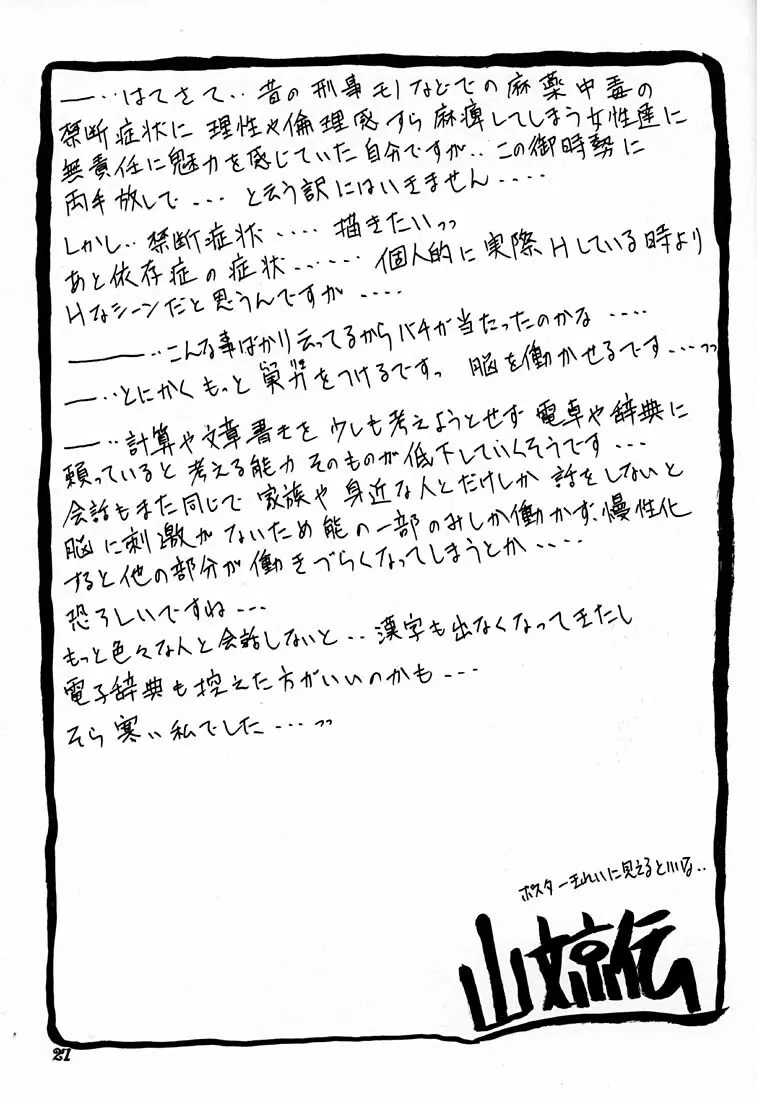 ―‥はてさて‥昔の刑事モノなどでの麻薬中毒の
禁断症状に理性や倫理感すら麻痺してしまう女性達に
無責任に魅力を感じていた自分ですが‥この御時勢に
両手放しで‥‥と云う訳にはいきません‥‥
しかし‥禁断症状‥‥描きたいっっ
あと依存症の症状‥‥‥個人的に実際Hしている時より
Hなシーンだと思うんですが‥‥
―‥こんな事ばかり云ってるからバチが当たったのかな‥‥
―‥とにかくもっとをつけるですっ 脳を働かせるです‥‥っっ
―‥計算や文章書きを少しも考えようとせず電卓や辞典に
頼っていると考える能力そのものが低下していくそうです‥‥
会話もまた同じで家族や身近な人とだけしか話をしないと
脳に刺激がないため能の一部のみしか働かず、慢性化
すると他の部分が働きづらくなってしまうとか‥‥
恐ろしいですね‥‥
もっと色々な人と会話しないと‥漢字も出なくなってきたし
電子辞典も控えた方がいいのかも‥‥
そら寒い私でした‥‥っっ
ポスターきれいに見えるといいな‥
山文京伝
27